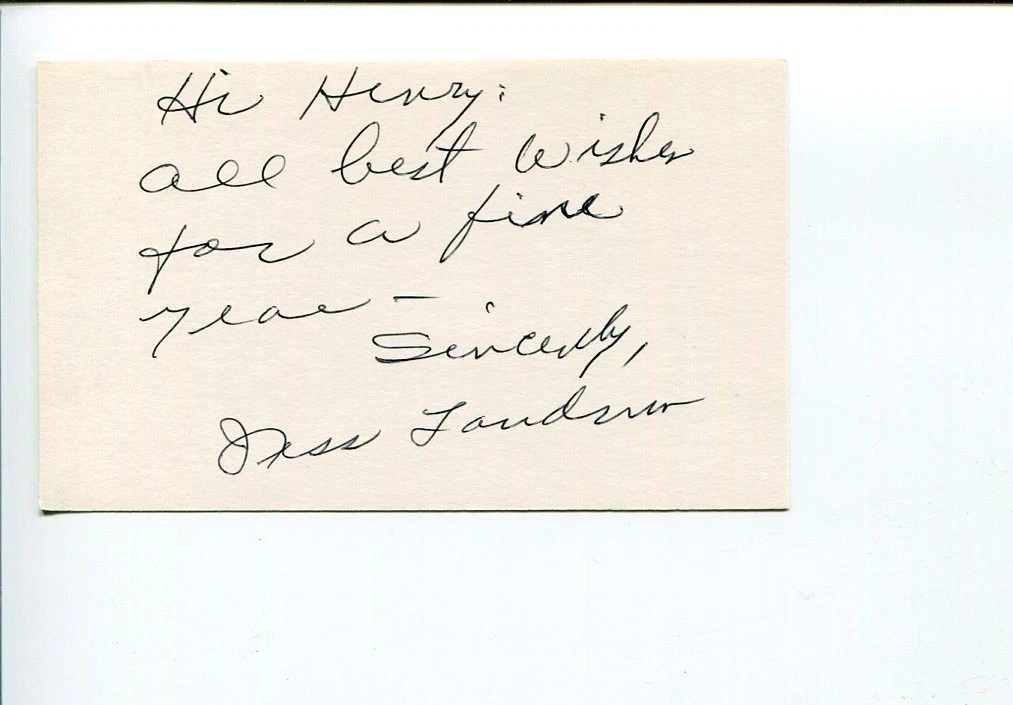 Hi Henry:
all best wishes
for a fine
year –
Sincerely,
Jess